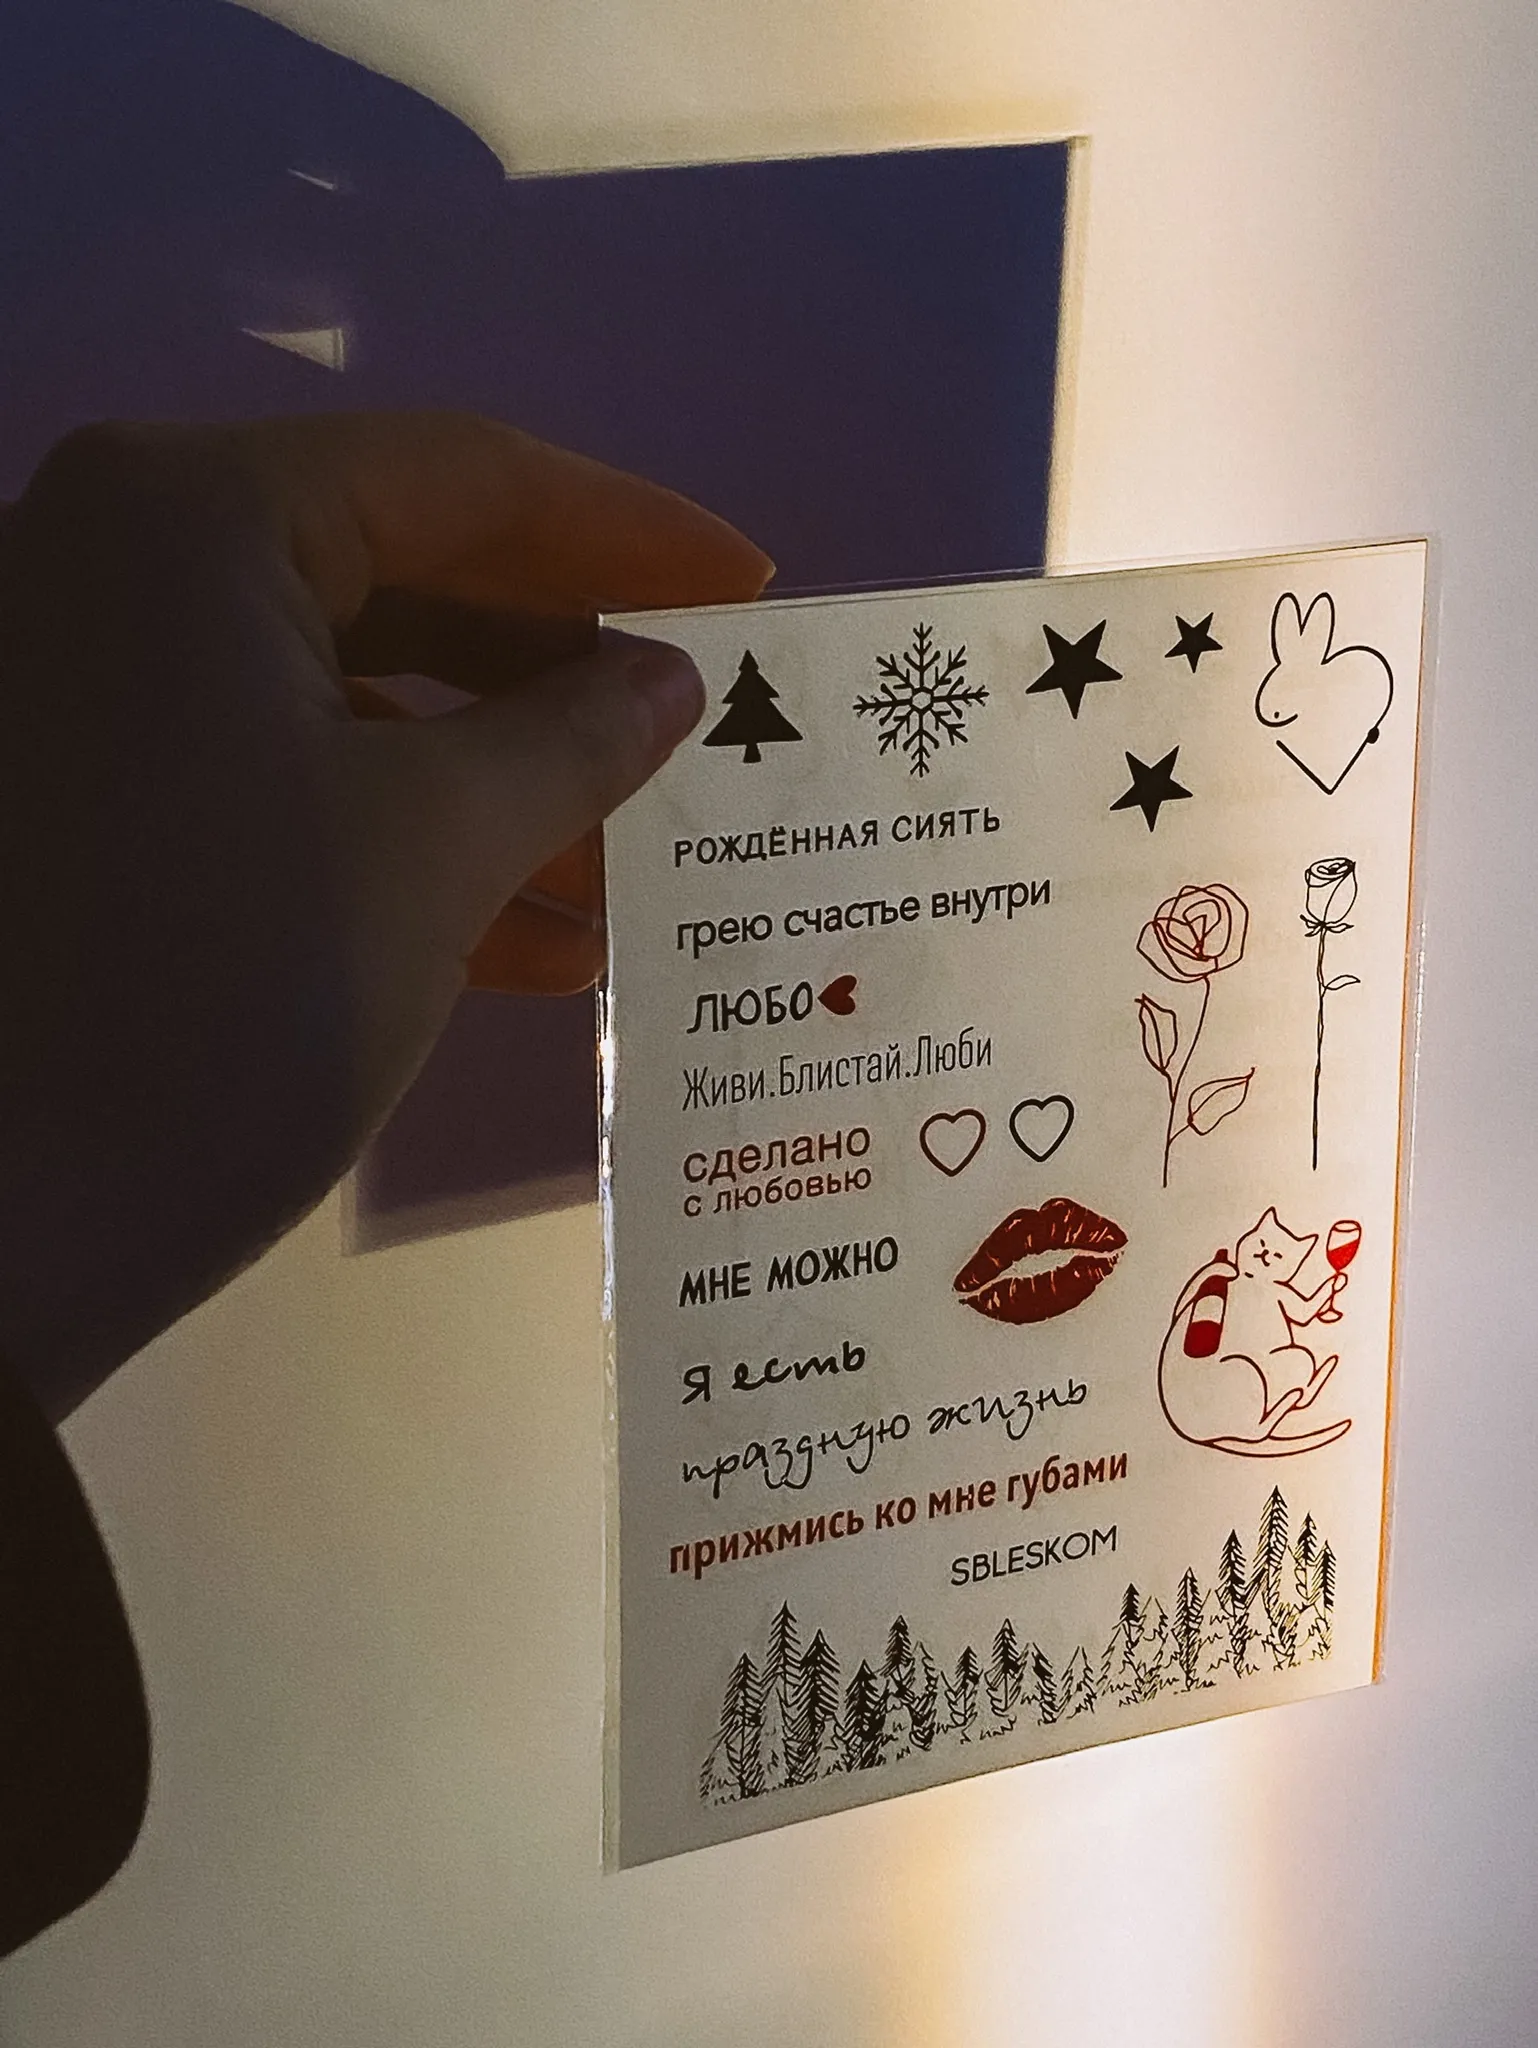 РОЖДЁННАЯ СИЯТЬ
грею счастье внутри
ЛЮБО
Живи.Блистай.Люби
сделано
с любовью
МНЕ МОЖНО
я есть
праздную жизнь
прижмись ко мне губами
SBLESKOM